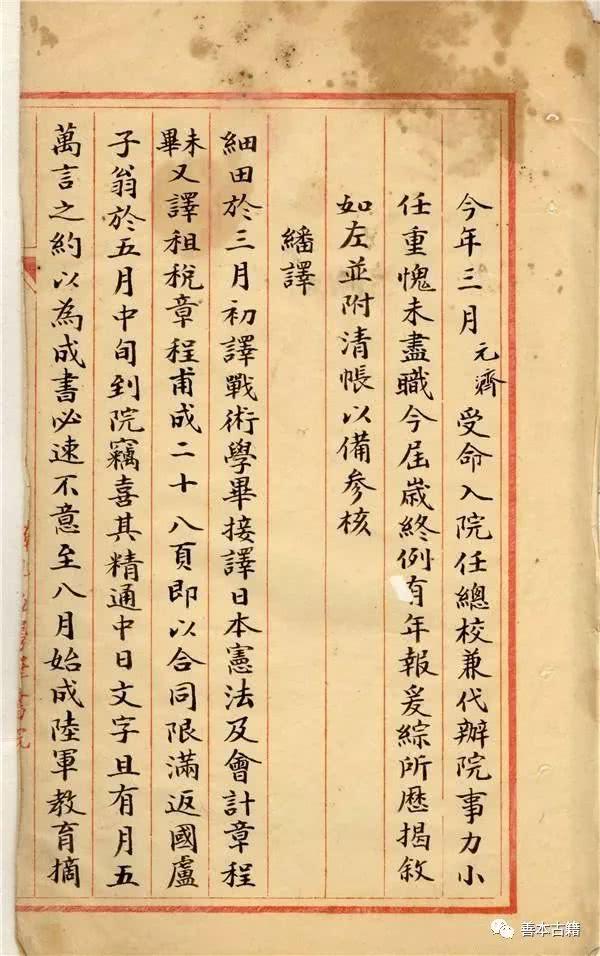 今年三月元濟受命入院任總校兼代辦院事力小
任重愧未盡職今屆歲終例有年報爰綜所歷揭敘
如左並附清帳以備參核
繙譯
細田於三月初譯戰術學畢接譯日本憲法及會計章程
未畢又譯租稅章程甫成二十八頁即以合同限滿返國盧
子翁於五月中旬到院竊喜其精通中日文字且有月五
萬言之約以為成書必速不意至八月始成陸軍教育摘
善本古籍